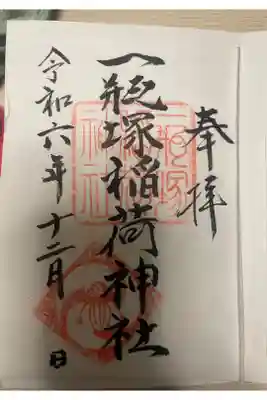 奉拝
一瓶塚稲荷神社
令和六年十二月 日